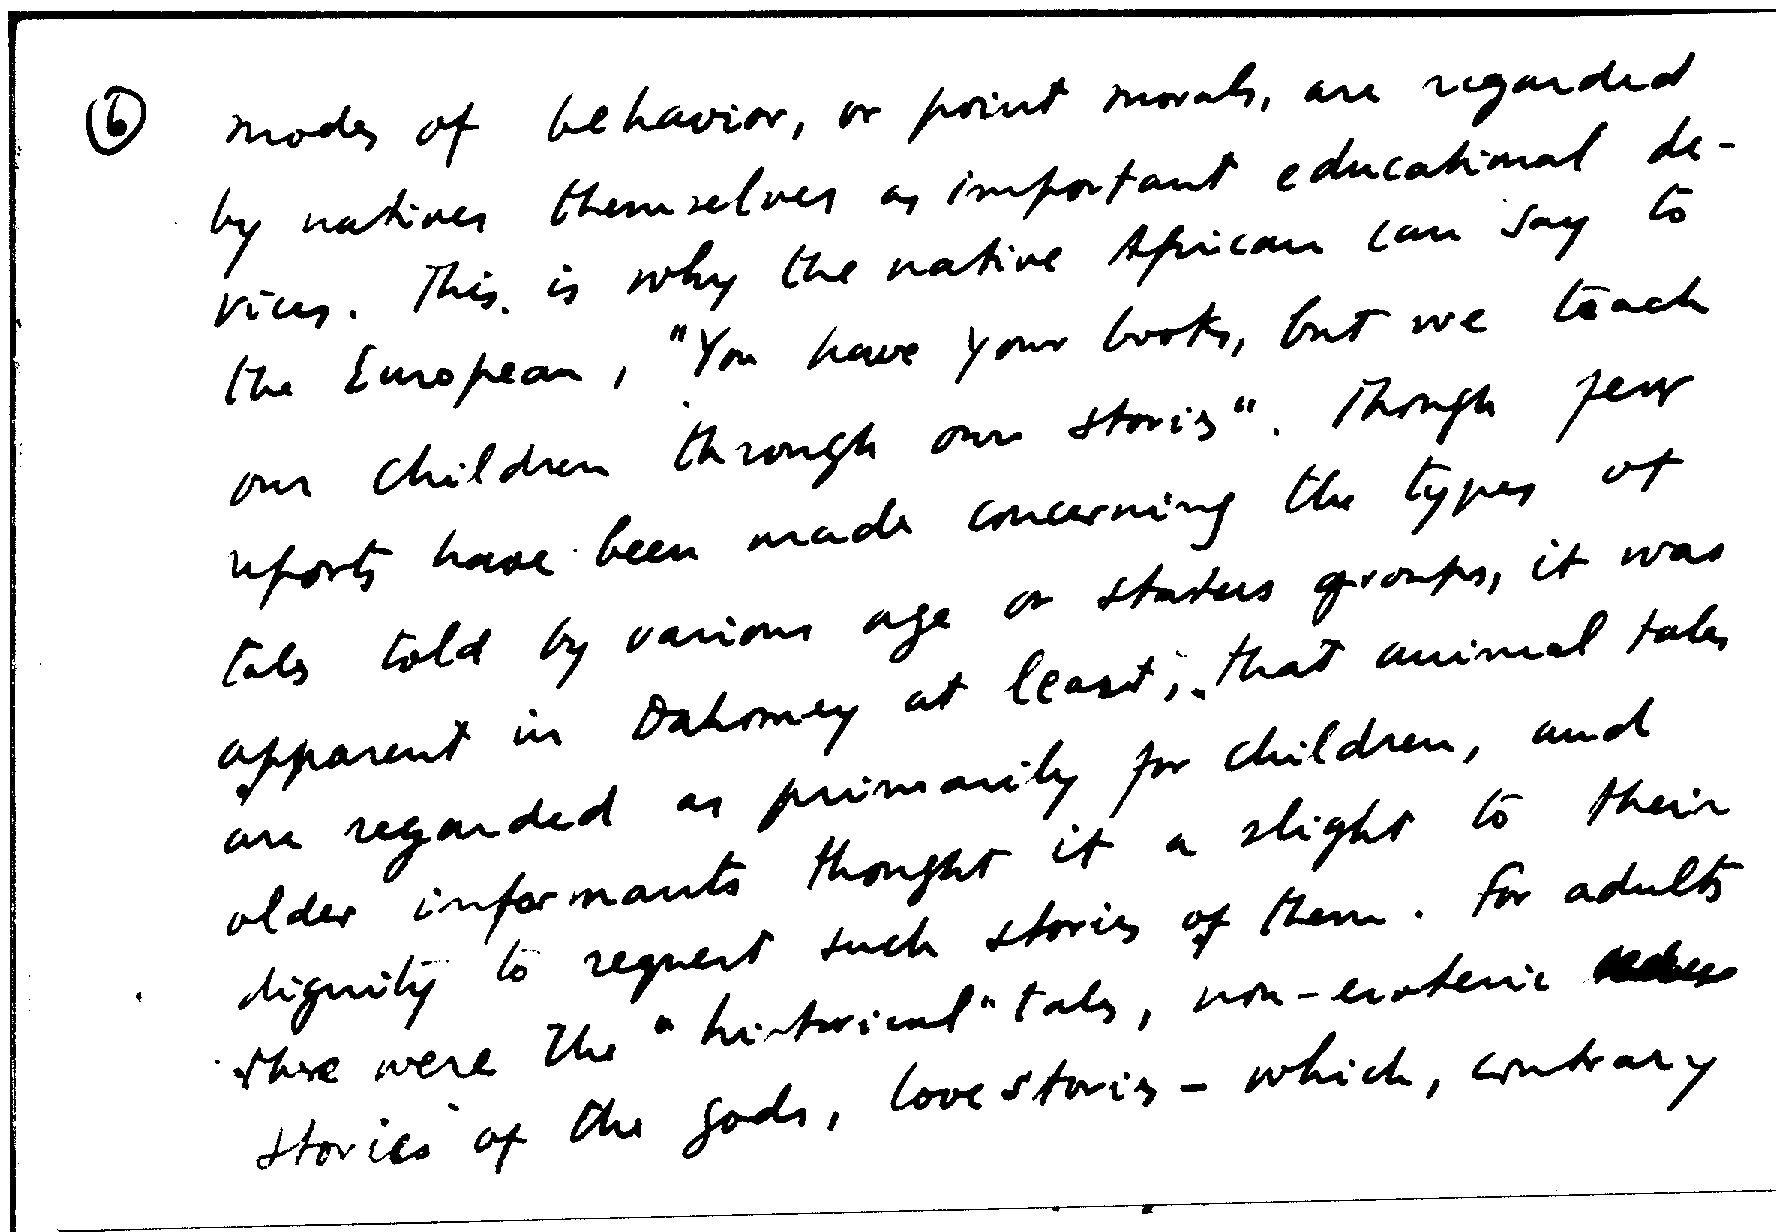 ⑥ modes of behavior, or point morals, are regarded
by natives themselves as important educational de-
vices. This is why the native African can say to
the European, "You have your books, but we teach
our children through our stories". Though few
reports have been made concerning the types of
tales told by various age or status groups, it was
apparent in Dahomey at least, that animal tales
are regarded as primarily for children, and
older informants thought it a slight to their
dignity to request such stories of them. For adults
there were the "historical" tales, non-esoteric
stories of the gods, love stories – which, contrary